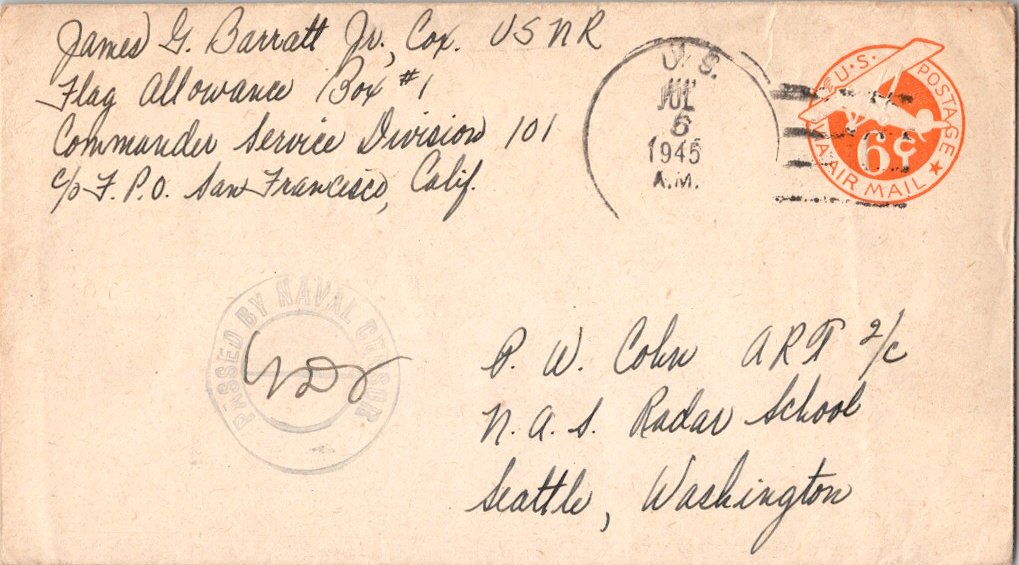 James G. Barratt Jr., Cox. USNR
Flag Allowance Box #1
Commander Service Division 101
c/o F.P.O. San Francisco, Calif.
U.S.
JUL
6
1945
A.M.
U.S. POSTAGE
VIA AIR MAIL
6¢
PASSED BY NAVAL CENSOR
P. W. Cohn ART 2/c
N.A.S. Radar School
Seattle, Washington